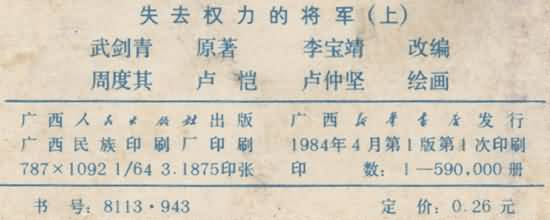 失去权力的将军(上)
武剑青 原著 李宝靖 改编
周度其 卢恺 卢仲坚 绘画
广西人民出版社出版 广西新华书店发行
广西民族印刷厂印刷 1984年4月第1版第1次印刷
787×1092 1/64 3.1875印张 印 数：1—590,000册
书 号：8113·943 定 价：0.26元